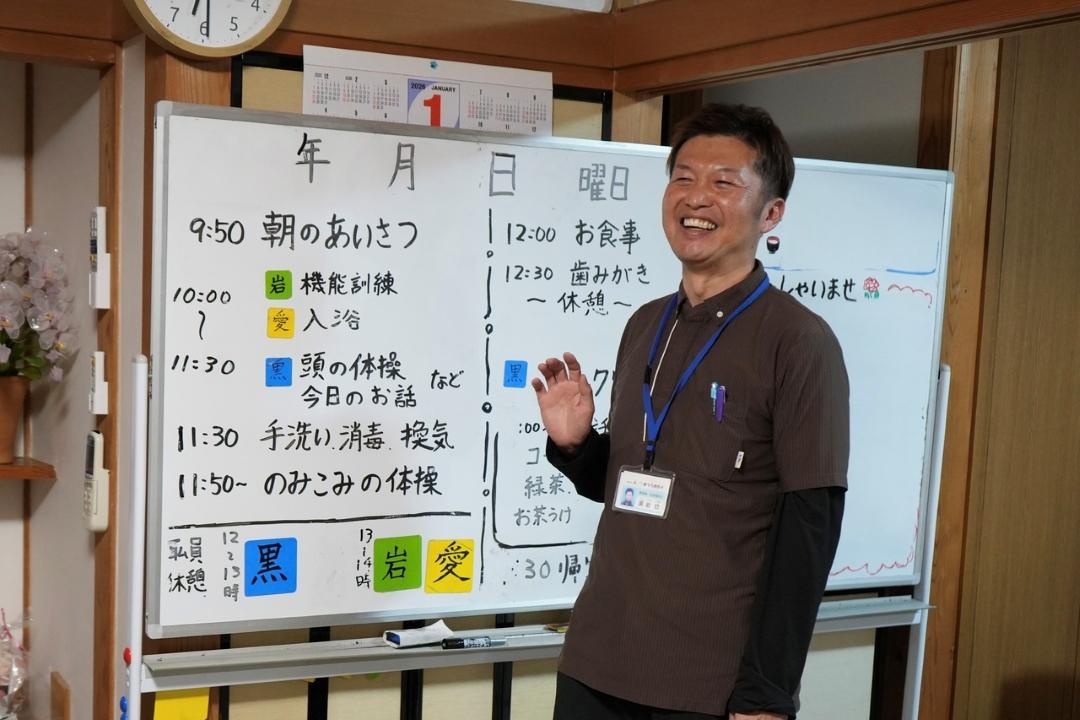 7 6 5 4
2026 JANUARY
1
年 月 日 曜日
9:50 朝のあいさつ
10:00
〜
11:30
岩 機能訓練
愛 入浴
黒 頭の体操
今日のお話 など
11:30 手洗い、消毒、換気
11:50~ のみこみの体操
休憩
12
〜
13
時
黒
13
〜
14
時
岩 愛
12:00 お食事
12:30 歯みがき
〜 休憩 〜
黒
:00
コー
緑茶、
お茶うけ
:30 帰
しゃいませ